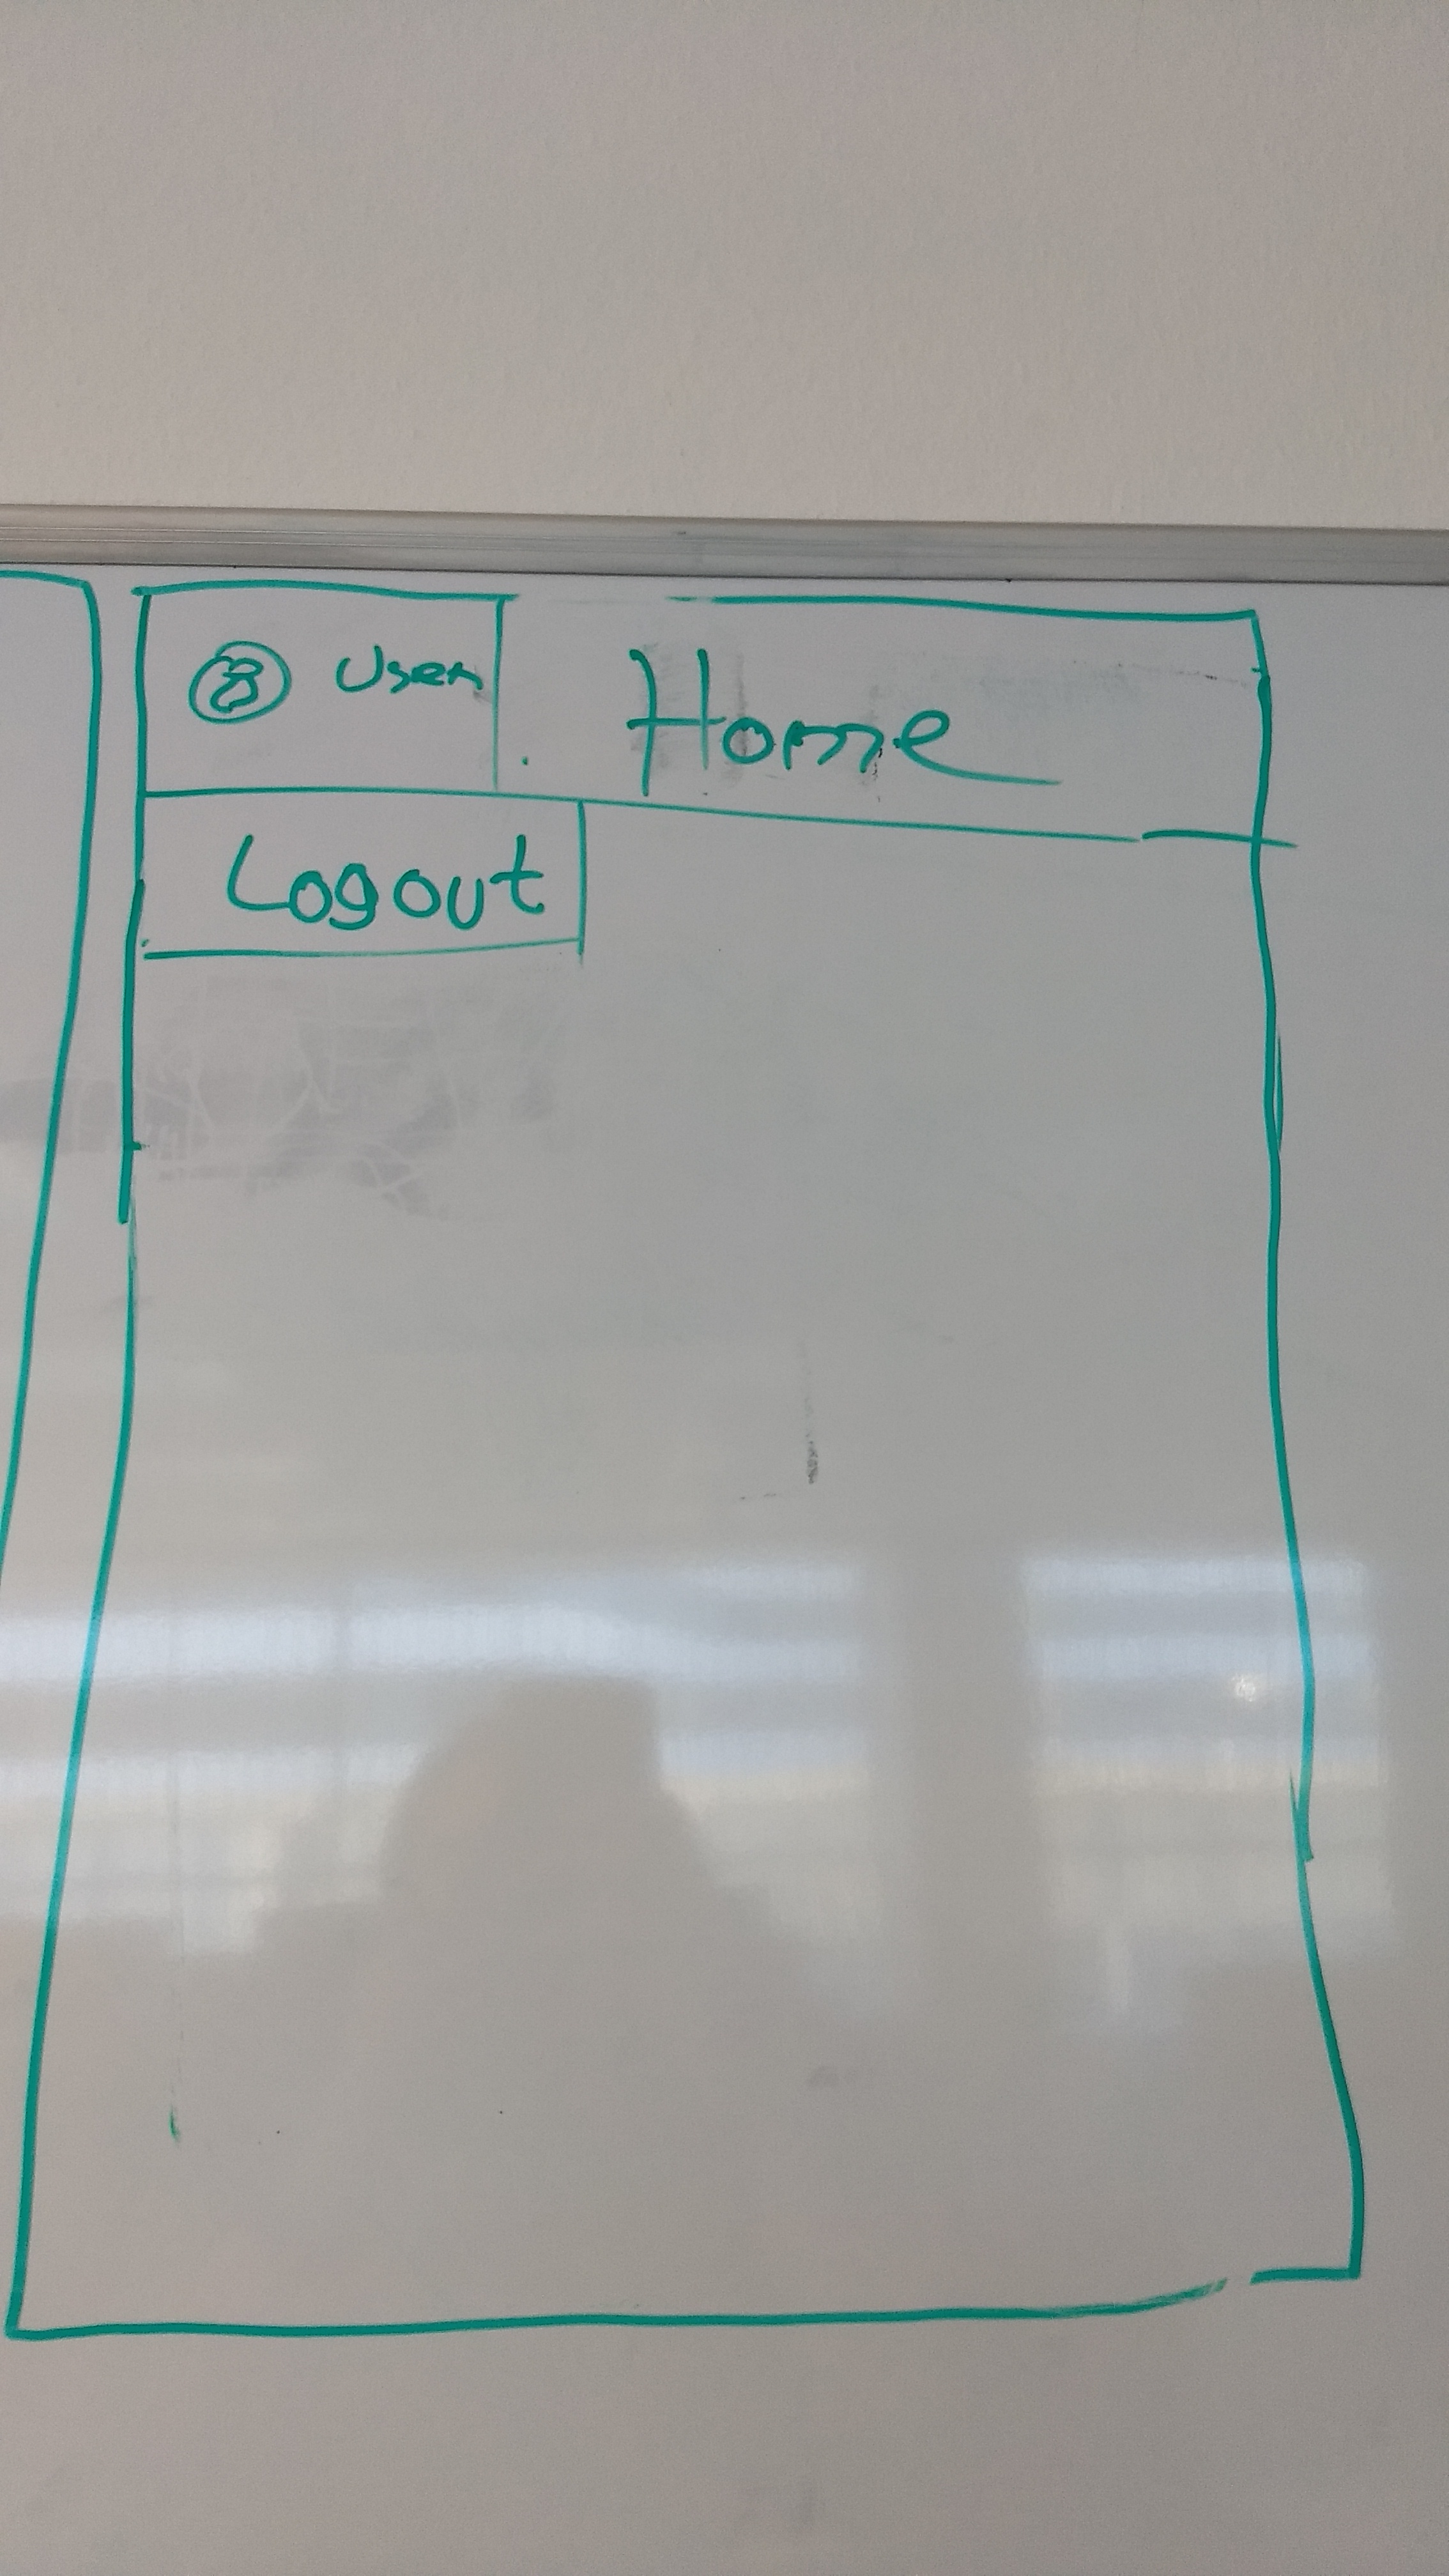 User
Home
Logout